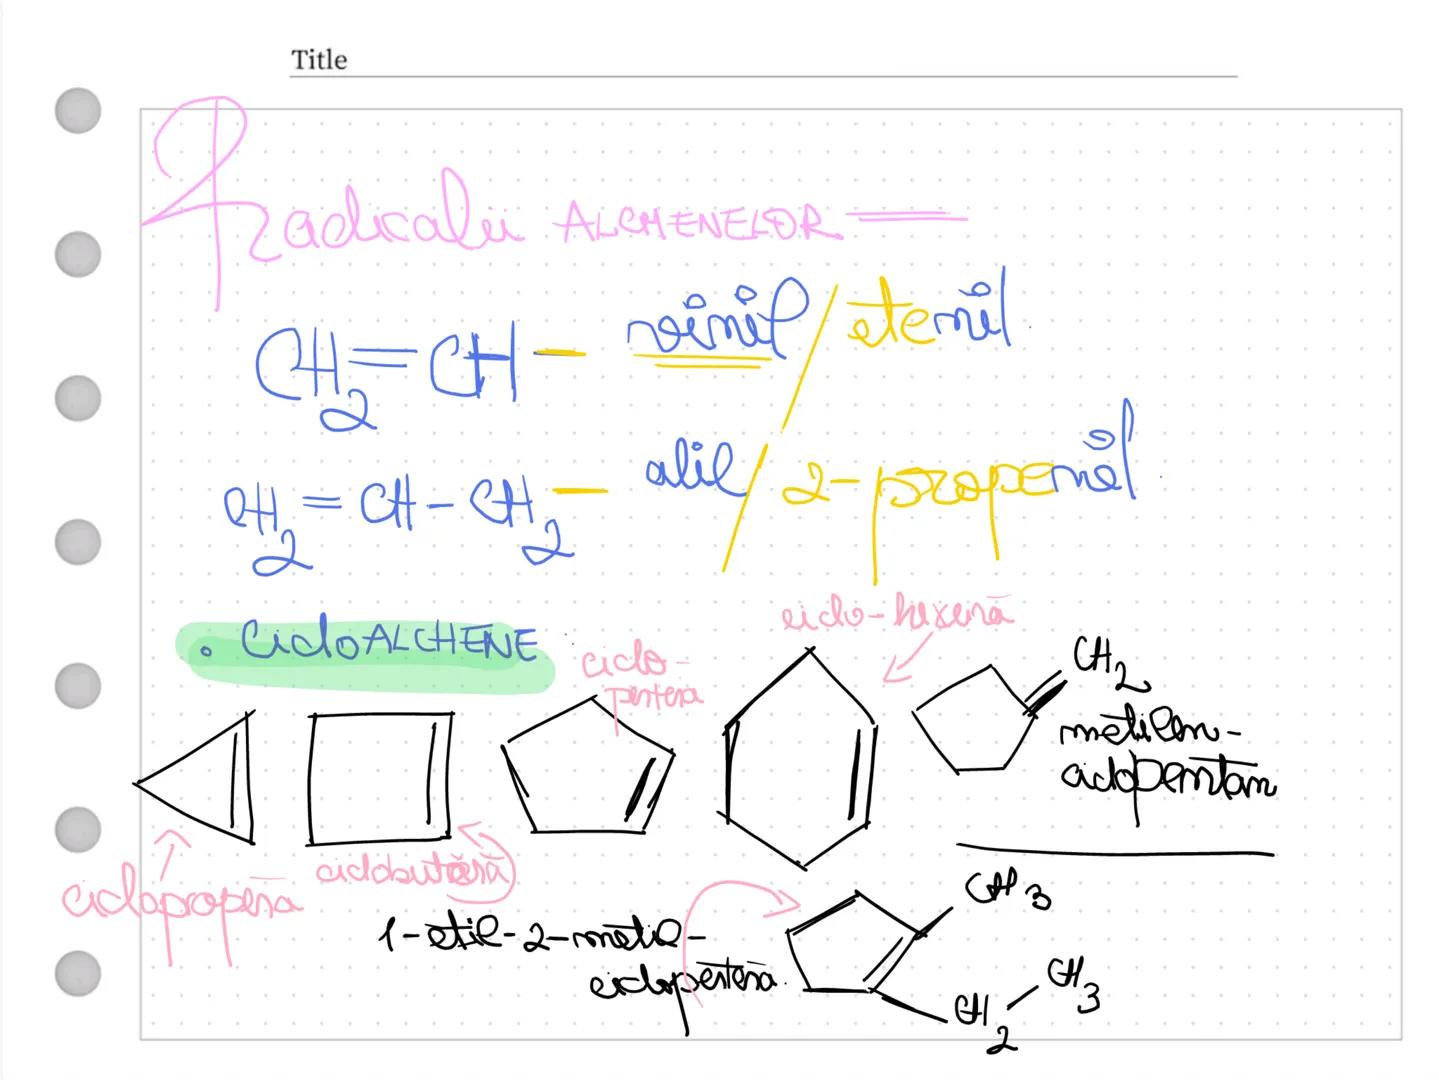 Title
Radicalii ALCHENELOR
CH2=CH— vinil / etenil
CH2=CH-CH2— alil / 2-propenil
ciclo-hexenă
• CicloALCHENE
ciclo-
pentenă
CH2
metilen-
ciclopentan
ciclobutenă
ciclopropenă
CH3
1-etil-2-metil-
ciclopentenă
CH2-CH3